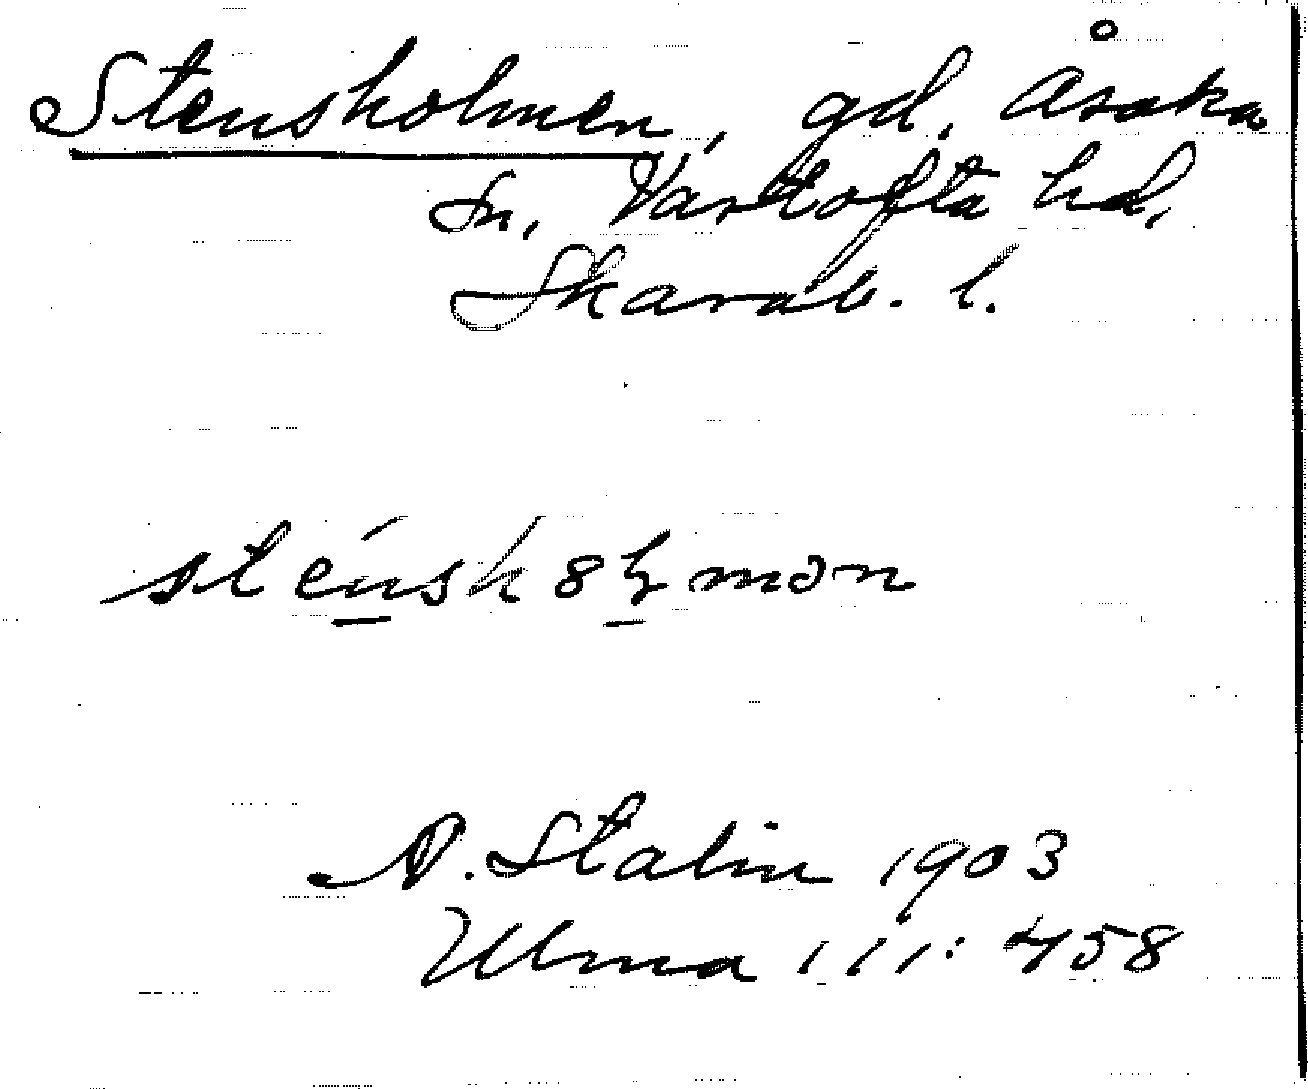 Stensholmen, gd, Åsaka
sn, Vartofta hd,
Skarab. l.
sténsk8ɮmɔn
A. Stalin 1903
Ulma 111:458